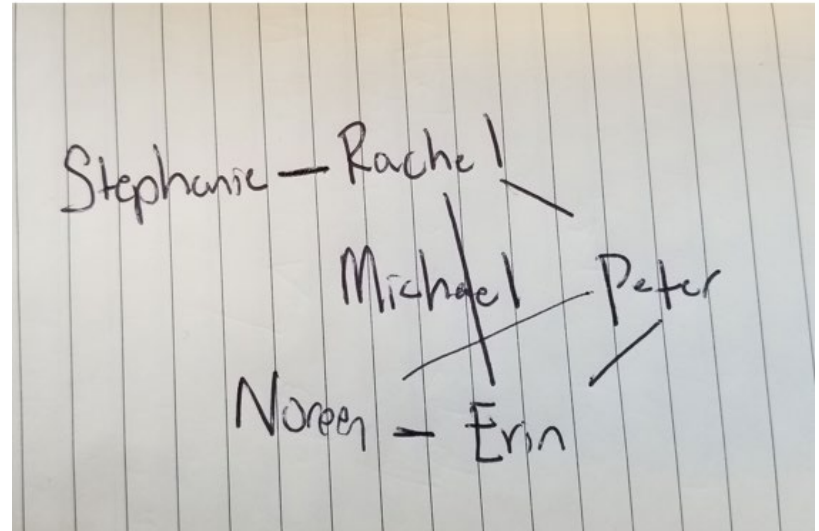 Stephanie - Rachel
Michael Peter
Noreen - Erin